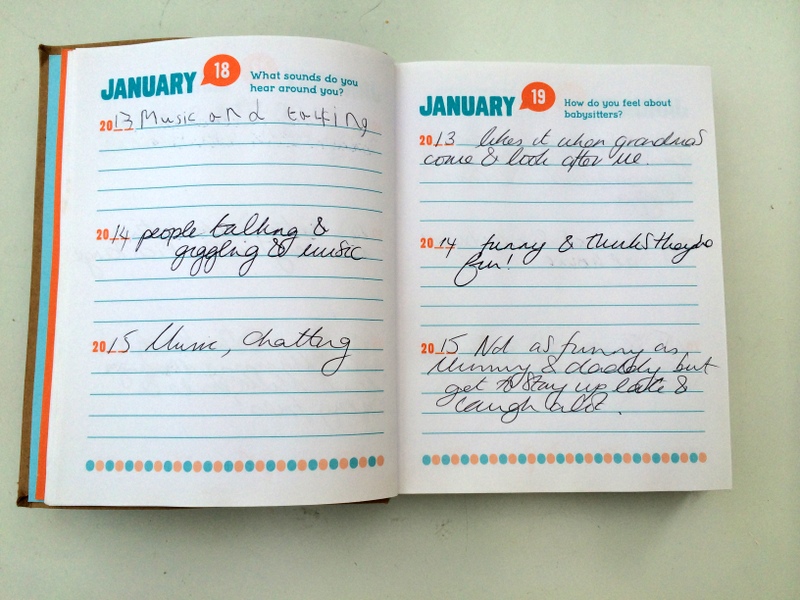 JANUARY 18
What sounds do you
hear around you?
2013 Music and talking
2014 people talking &
giggling & music
2015 Music, chatting
JANUARY 19
How do you feel about
babysitters?
2013 likes it when grandmas
come & look after me.
2014 funny & thinks they do
fun!
2015 Not as funny as
Mummy & daddy but
get to stay up late &
laugh alot.